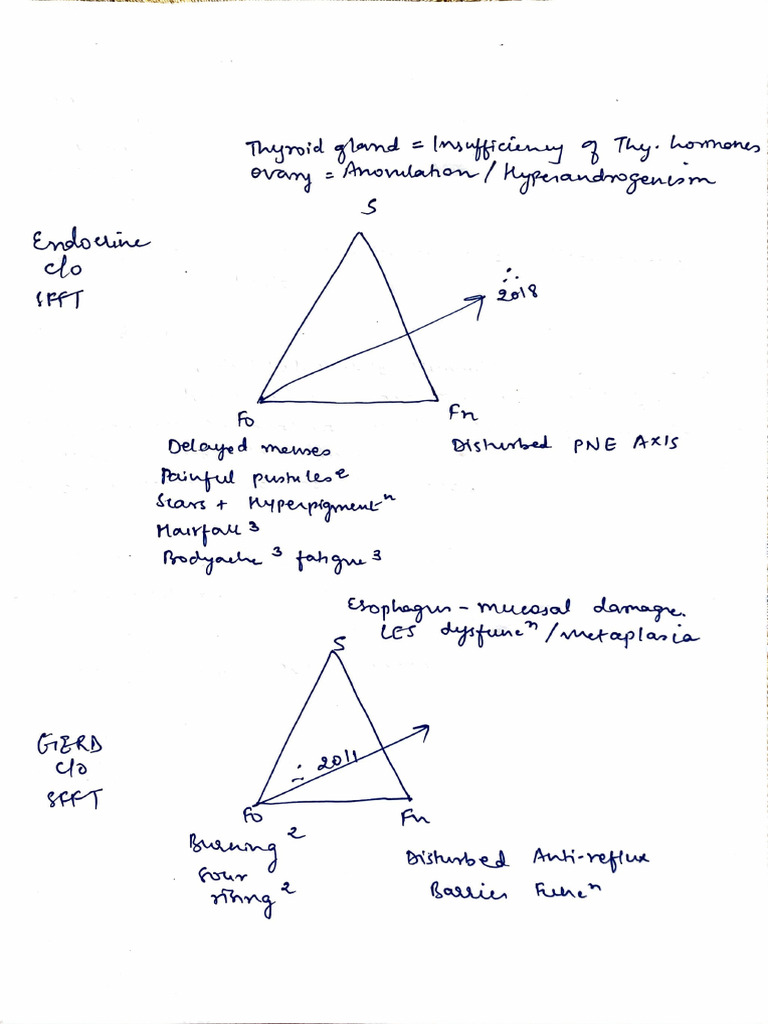 Thyroid gland = Insufficiency of Thy. hormones
Ovary = Anovulation / Hyperandrogenism
S
Endocrine
c/o
SFFT
∴ 2018
Fo
Fn
Delayed menses
Disturbed PNE AXIS
Painful pustules²
Scars + Hyperpigmentⁿ
Hairfall ³
Bodyache ³ fatigue ³
Esophagus - mucosal damage.
LES dysfuncⁿ / metaplasia
S
GERD
c/o
SFFT
∴ 2011
Fo
Fn
Burning ²
Sour
rising ²
Disturbed Anti-reflux
Barrier Funcⁿ